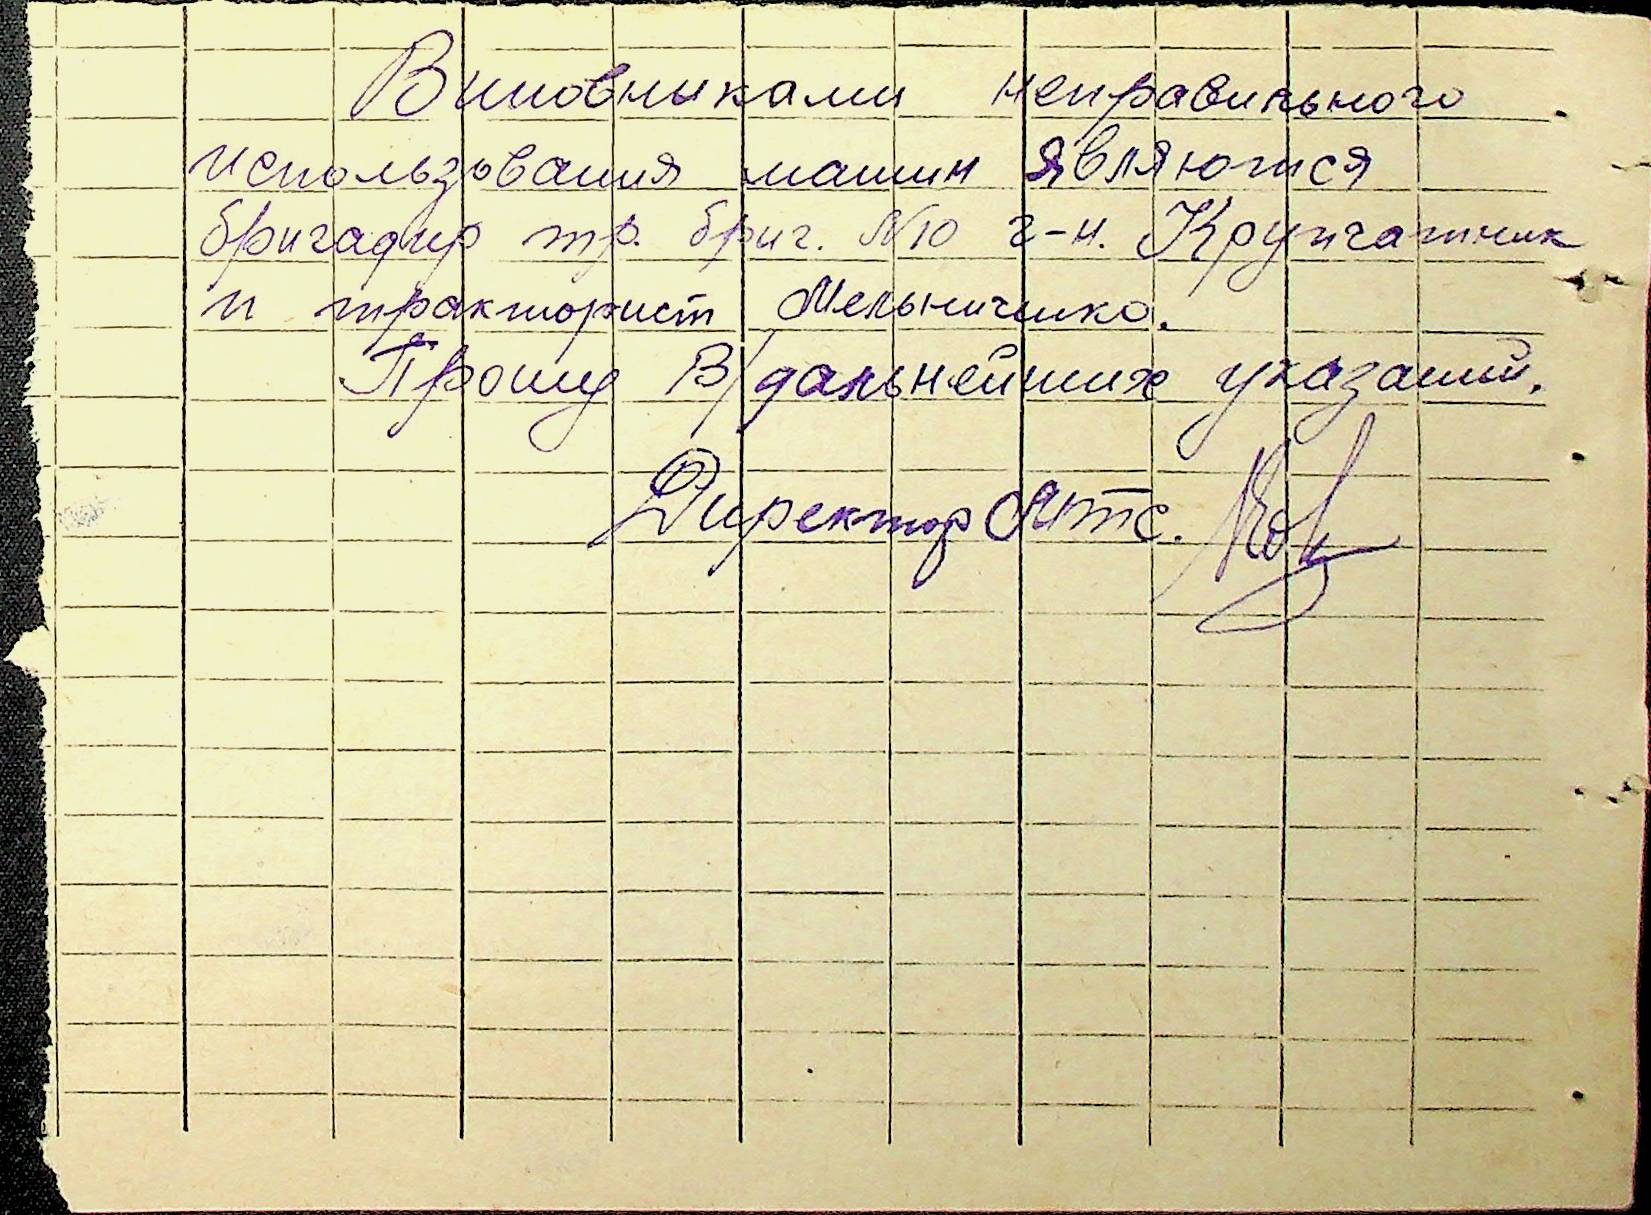 Виновниками неправильного
использования машин являются
бригадир тр. бриг. №10 г-н. Крупчатник
и тракторист Мельниченко.
Прошу В/дальнейших указаний.
Директор МТС.